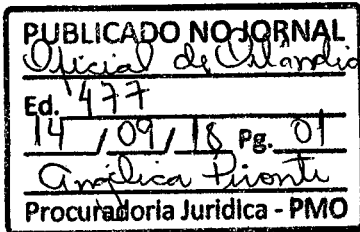 PUBLICADO NO JORNAL
Oficial de Orlândia
Ed. 477
14 / 09 / 18 Pg. 01
Angélica
Procuradoria Juridica - PMO